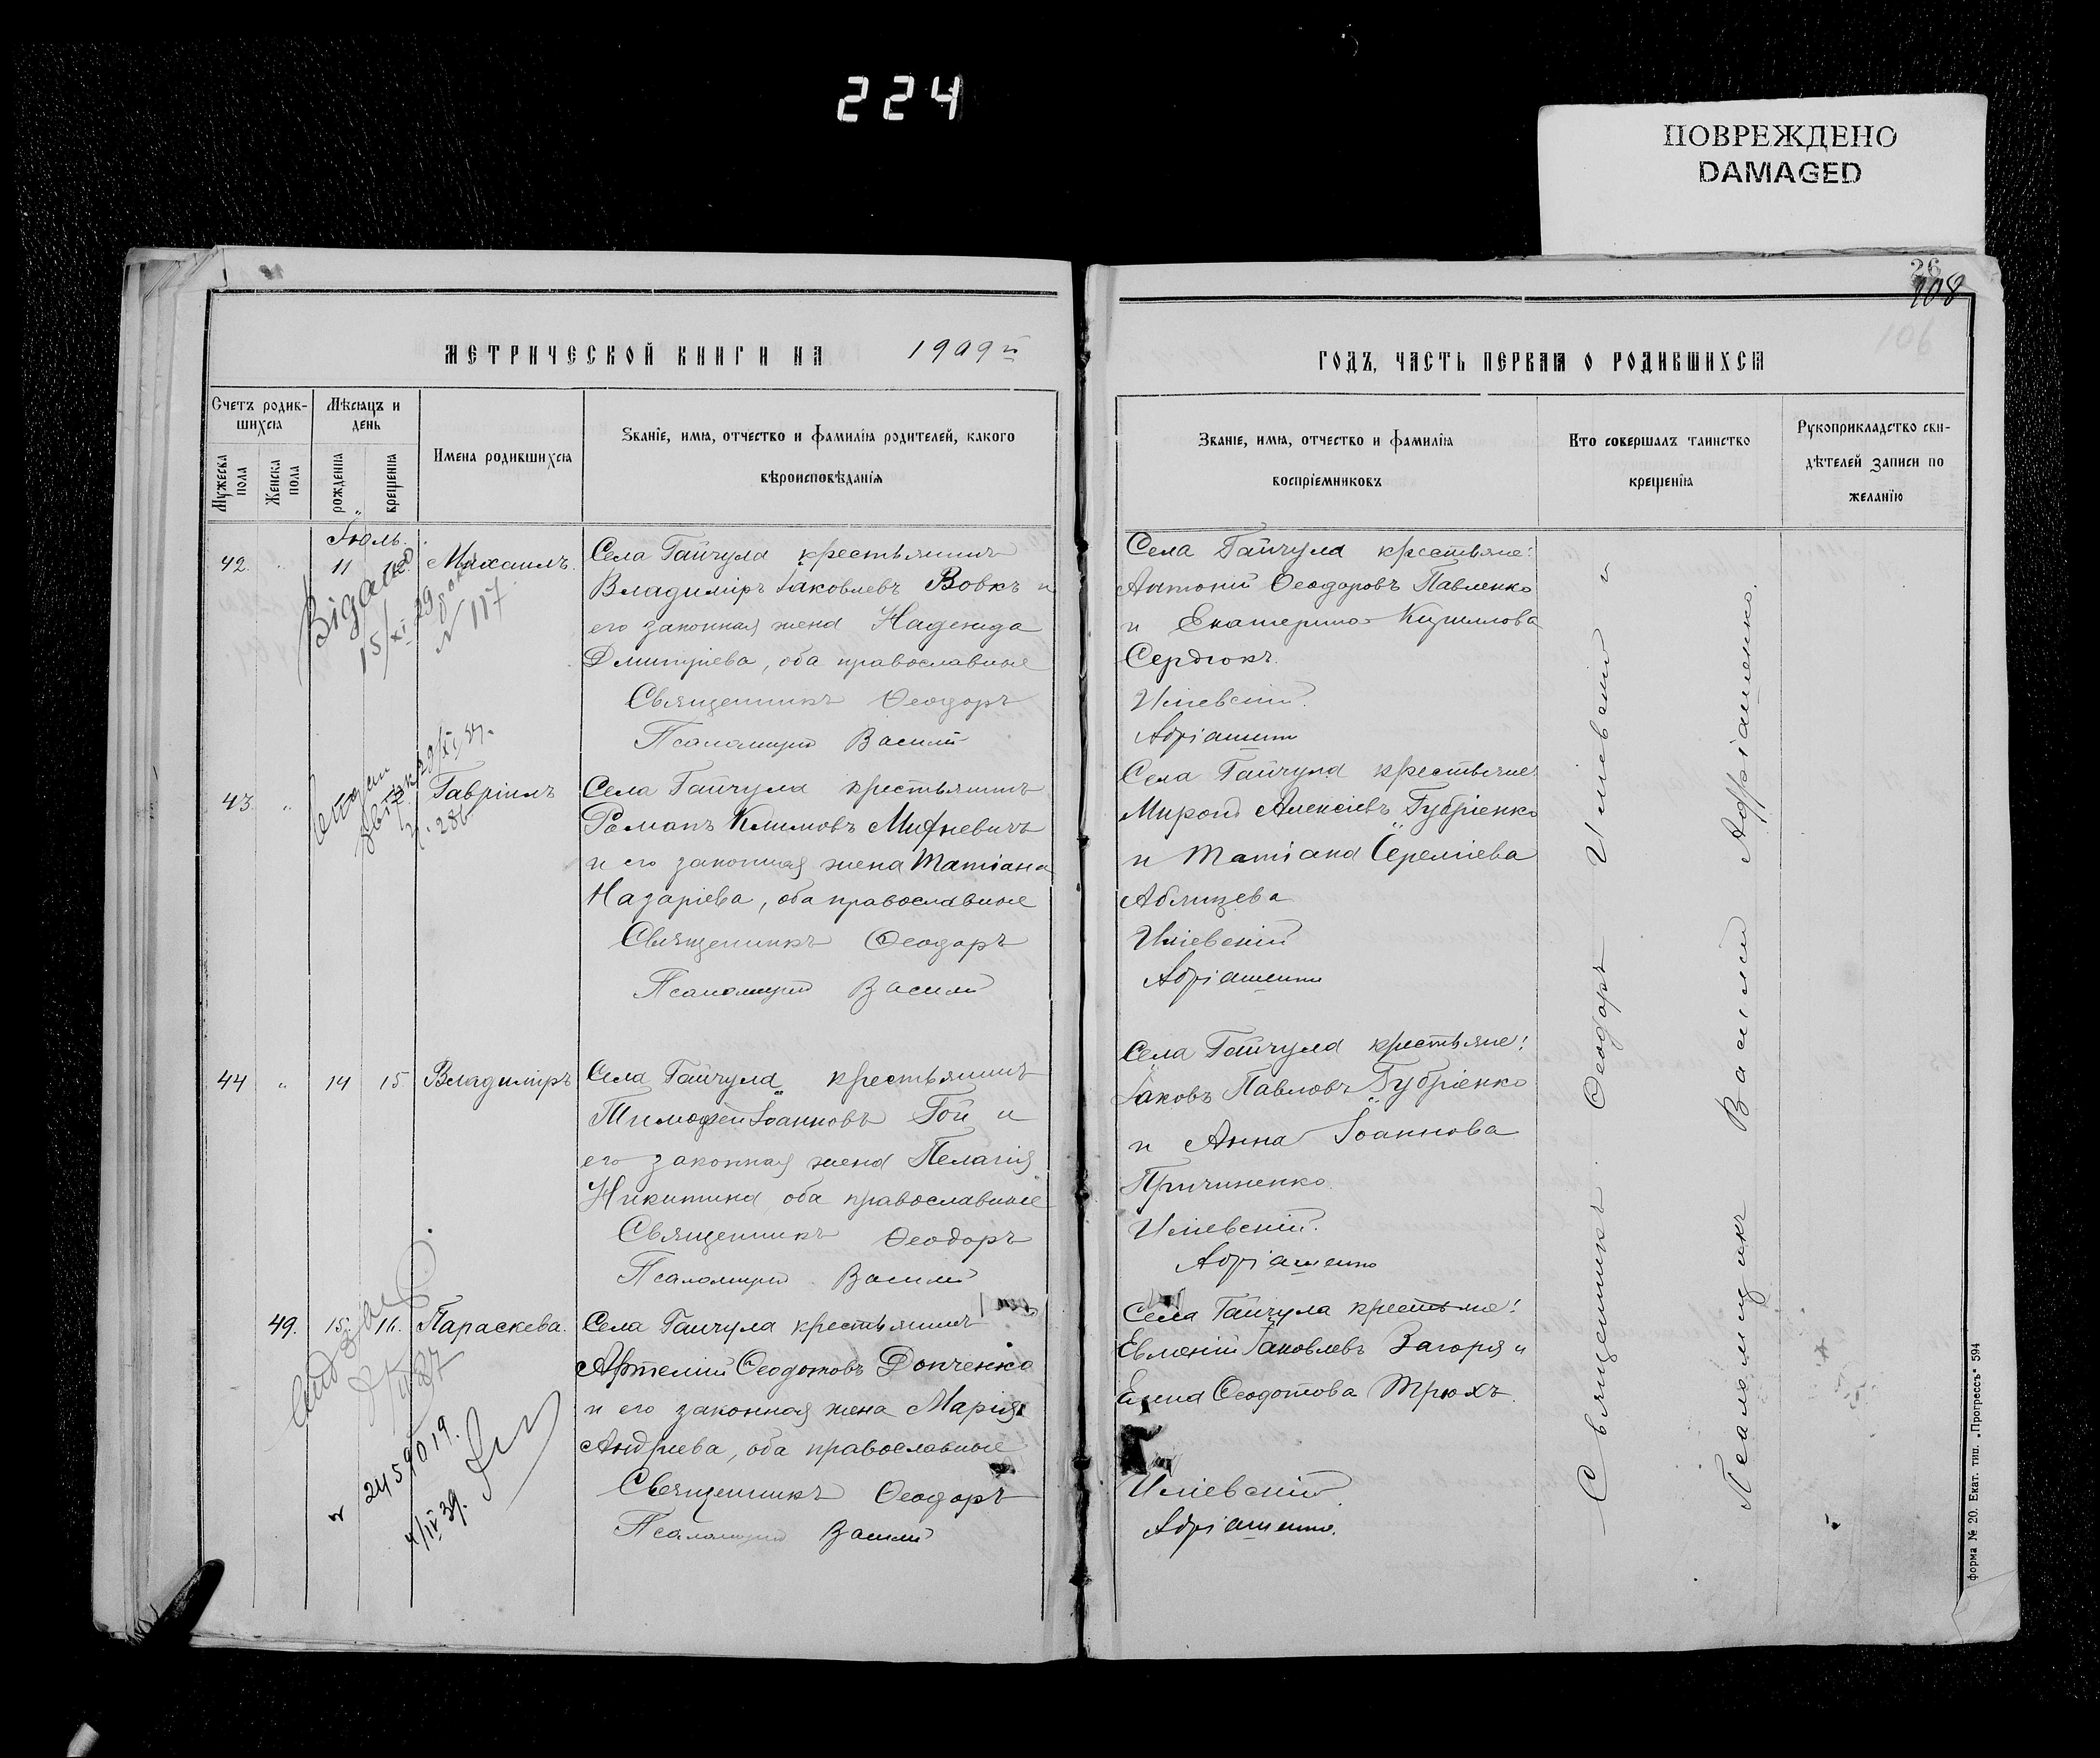 224
ПОВРЕЖДЕНО
DAMAGED
26
108
106
МЕТРИЧЕСКОЙ КНИГИ НА 1909 й
ГОДЪ, ЧАСТЬ ПЕРВАЯ О РОДИВШИХСЯ
Счетъ родив-
шихся
Мужеска
пола
Женска
пола
Мѣсяцъ и
день
рожденія
крещенія
Имена родившихся
Званіе, имя, отчество и фамилія родителей, какого
вѣроисповѣданія
Званіе, имя, отчество и фамилія
воспріемниковъ
Кто совершалъ таинство
крещенія
Рукоприкладство сви-
дѣтелей записи по
желанію
Іюль.
42. " 11 12. Михаилъ.
Села Гайчула крестьянинъ
Владиміръ Іаковлевъ Вовкъ и
его законная жена Надежда
Димитріева, оба православные
Священникъ Ѳеодоръ
Псаломщикъ Василій
Села Гайчула крестьяне:
Антоній Ѳеодоровъ Павленко
и Екатерина Кириллова
Сердюкъ.
Иліевскій.
Адріашенко
Видано
15/XI 39
N 117
43. " Гавріилъ
Села Гайчула крестьянинъ
Романъ Климовъ Михневичъ
и его законная жена Татіана
Назаріева, оба православные
Священникъ Ѳеодоръ
Псаломщикъ Василій
Села Гайчула крестьяне:
Миронъ Алексіевъ Губріенко
и Татіана Іереміева
Аблицева
Иліевскій
Адріашенко
286
44 " 14 15 Владиміръ
Села Гайчула крестьянинъ
Тимофей Іоанновъ Гой и
его законная жена Пелагія
Никитина, оба православные
Священникъ Ѳеодоръ
Псаломщикъ Василій
Села Гайчула крестьяне:
Іаковъ Павловъ Губріенко
и Анна Іоаннова
Причиненко
Иліевскій.
Адріашенко
49. 15. 16. Параскева.
Села Гайчула крестьянинъ
Артемій Ѳеодотовъ Донченко
и его законная жена Марія
Андреева, оба православные
Священникъ Ѳеодоръ
Псаломщикъ Василій
Села Гайчула крестьяне:
Евменій Іаковлевъ Загоря и
Елена Ѳеодотова Трюхъ.
Иліевскій
Адріашенко.
2459019.
4/IV 39.
Священникъ Ѳеодоръ Иліевскій и
Псаломщикъ Василій Адріашенко.
форма № 20. Екат. тип. „Прогрессъ" 594